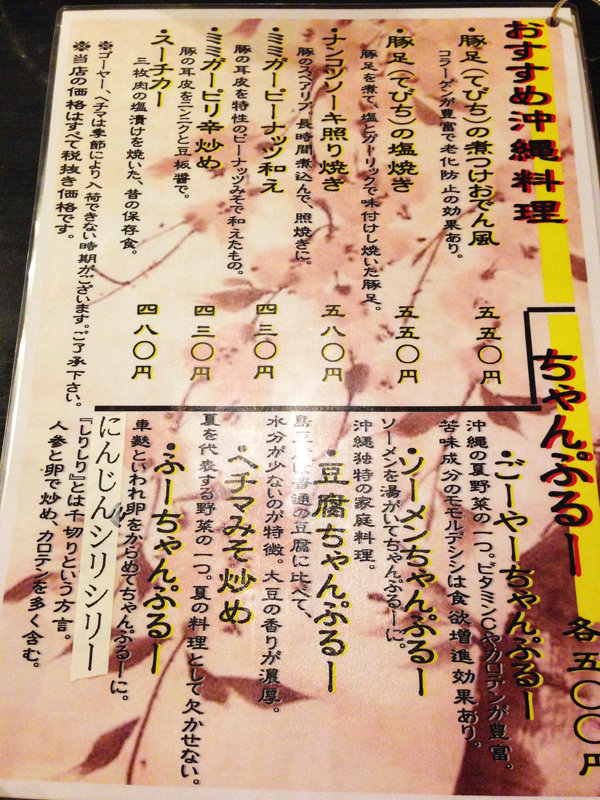 おすすめ沖縄料理
・豚足(てびち)の煮つけおでん風 五五〇円
コラーゲンが豊富で老化防止の効果あり。
・豚足(てびち)の塩焼き 五五〇円
豚足を煮て、塩とガーリックで味付けし焼いた豚足。
・ナンコツソーキ照り焼き 五八〇円
豚のスペアリブ。長時間煮込んで、照焼きに。
・ミミガーピーナッツ和え 四三〇円
豚の耳皮を特性のピーナッツみそで和えたもの。
・ミミガーピリ辛炒め 四三〇円
豚の耳皮をニンニクと豆板醬で。
・スーチカー 四八〇円
三枚肉の塩漬けを焼いた、昔の保存食。
※ゴーヤー、ヘチマは季節により入荷できない時期がございます。ご了承下さい。
※当店の価格はすべて税抜き価格です。
ちゃんぷるー 各五〇〇円
・ごーやーちゃんぷるー
沖縄の夏野菜の一つ。ビタミンCやカロテンが豊富。
苦味成分のモモルデシンは食欲増進効果あり。
・ソーメンちゃんぷるー
ソーメンを湯がいてちゃんぷるーに。
沖縄独特の家庭料理。
・豆腐ちゃんぷるー
島豆腐は普通の豆腐に比べて、
水分が少ないのが特徴。大豆の香りが濃厚。
・ヘチマみそ炒め
夏を代表する野菜の一つ。夏の料理として欠かせない。
・ふーちゃんぷるー
車麩といわれ卵をからめてちゃんぷるーに。
にんじんシリシリー
『しりしり』とは千切りという方言。
人参と卵で炒め、カロテンを多く含む。